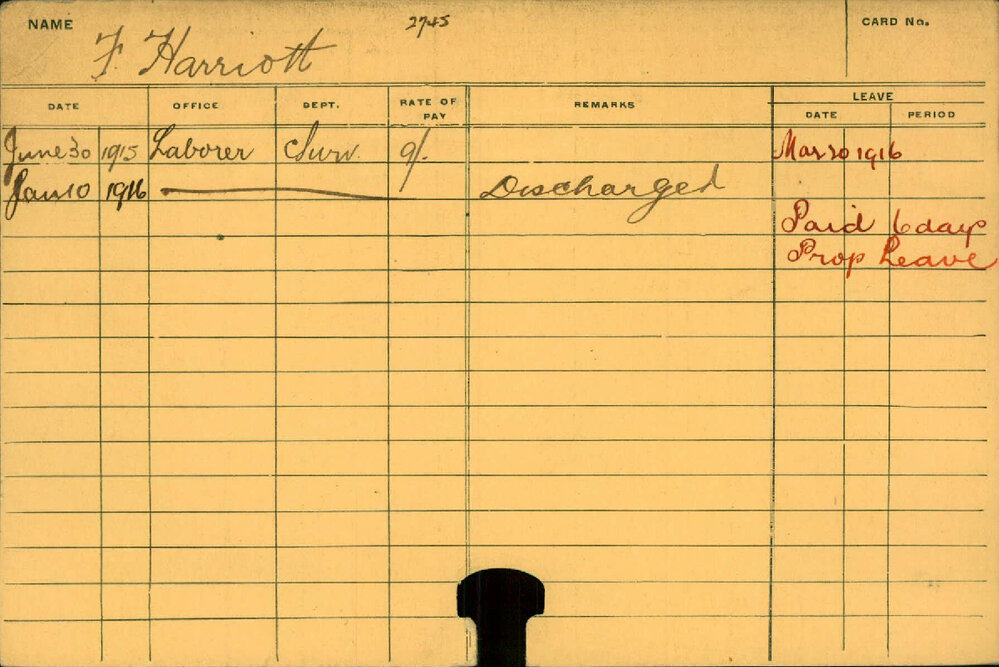 NAME F. Harriott 2745 CARD No.
DATE OFFICE DEPT. RATE OF PAY REMARKS LEAVE
DATE PERIOD
June 30 1915 Laborer Surv. 9/- Mar 20 1916
Jan 10 1916 Discharged
Paid 6 days
Prop Leave